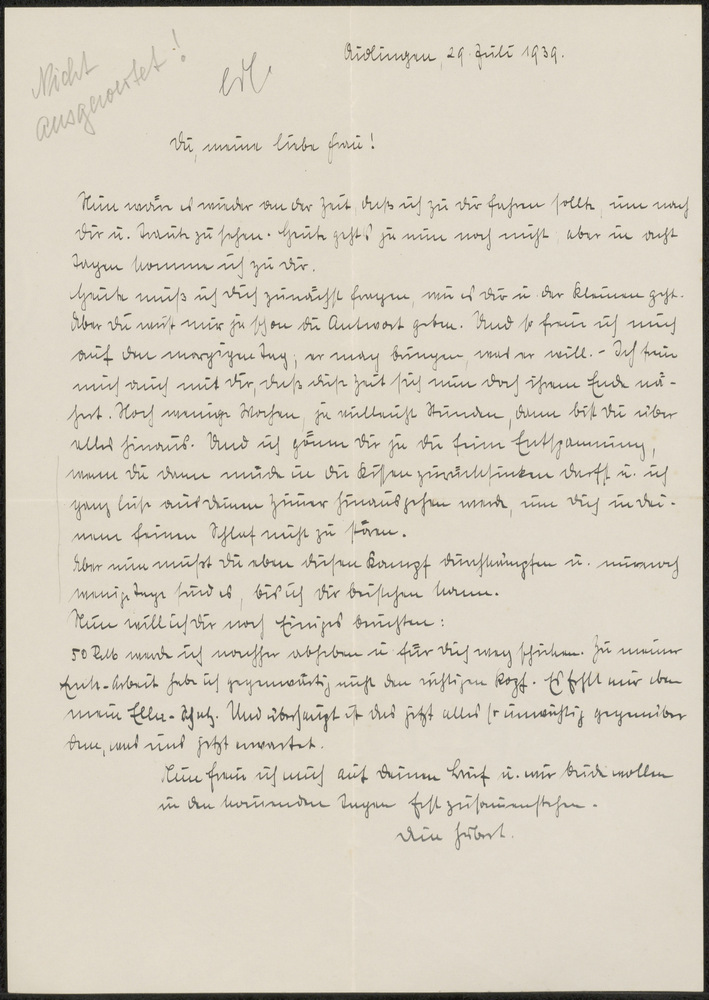 Nicht
ausgewertet!
Aidlingen, 29. Juli 1939.
Du, meine liebe Frau!
Nun wäre es wieder an der Zeit, daß ich zu Dir fahren sollte, um nach
Dir u. Traute zu sehen. Heute geht's ja nun noch nicht, aber in acht
Tagen komme ich zu Dir.
Heute muß ich Dich zunächst fragen, wie es Dir u. der Kleinen geht.
Aber Du wirst mir ja schon die Antwort geben. Und so freue ich mich
auf den morgigen Tag, er mag bringen, was er will. - Ich freue
mich auch mit Dir, daß diese Zeit sich nun doch ihrem Ende nä-
hert. Noch wenige Wochen, ja vielleicht Stunden, dann bist Du über
alles hinaus. Und ich gönne Dir ja die feine Entspannung,
wenn Du dann müde in die Kissen zurücksinken darfst u. ich
ganz leise aus Deinem Zimmer hinausgehen werde, um Dich in Dei-
nem feinen Schlaf nicht zu stören.
Aber nun mußt Du eben diesen Kampf durchkämpfen u. nur noch
wenige Tage sind es, bis ich Dir beistehen kann.
Nun will ich Dir noch Einiges berichten:
50 RM werde ich nachher abheben u. für Dich weg schicken. Zu meiner
habe ich gegenwärtig nicht den richtigen Kopf. Es fehlt mir eben
mein Schatz. Und überhaupt ist das jetzt alles so unwichtig gegenüber
dem, was uns jetzt erwartet.
Nun freue ich mich auf Deinen Brief u. wir beide wollen
in den kommenden Tagen fest zusammenstehen.
Dein Hubert.